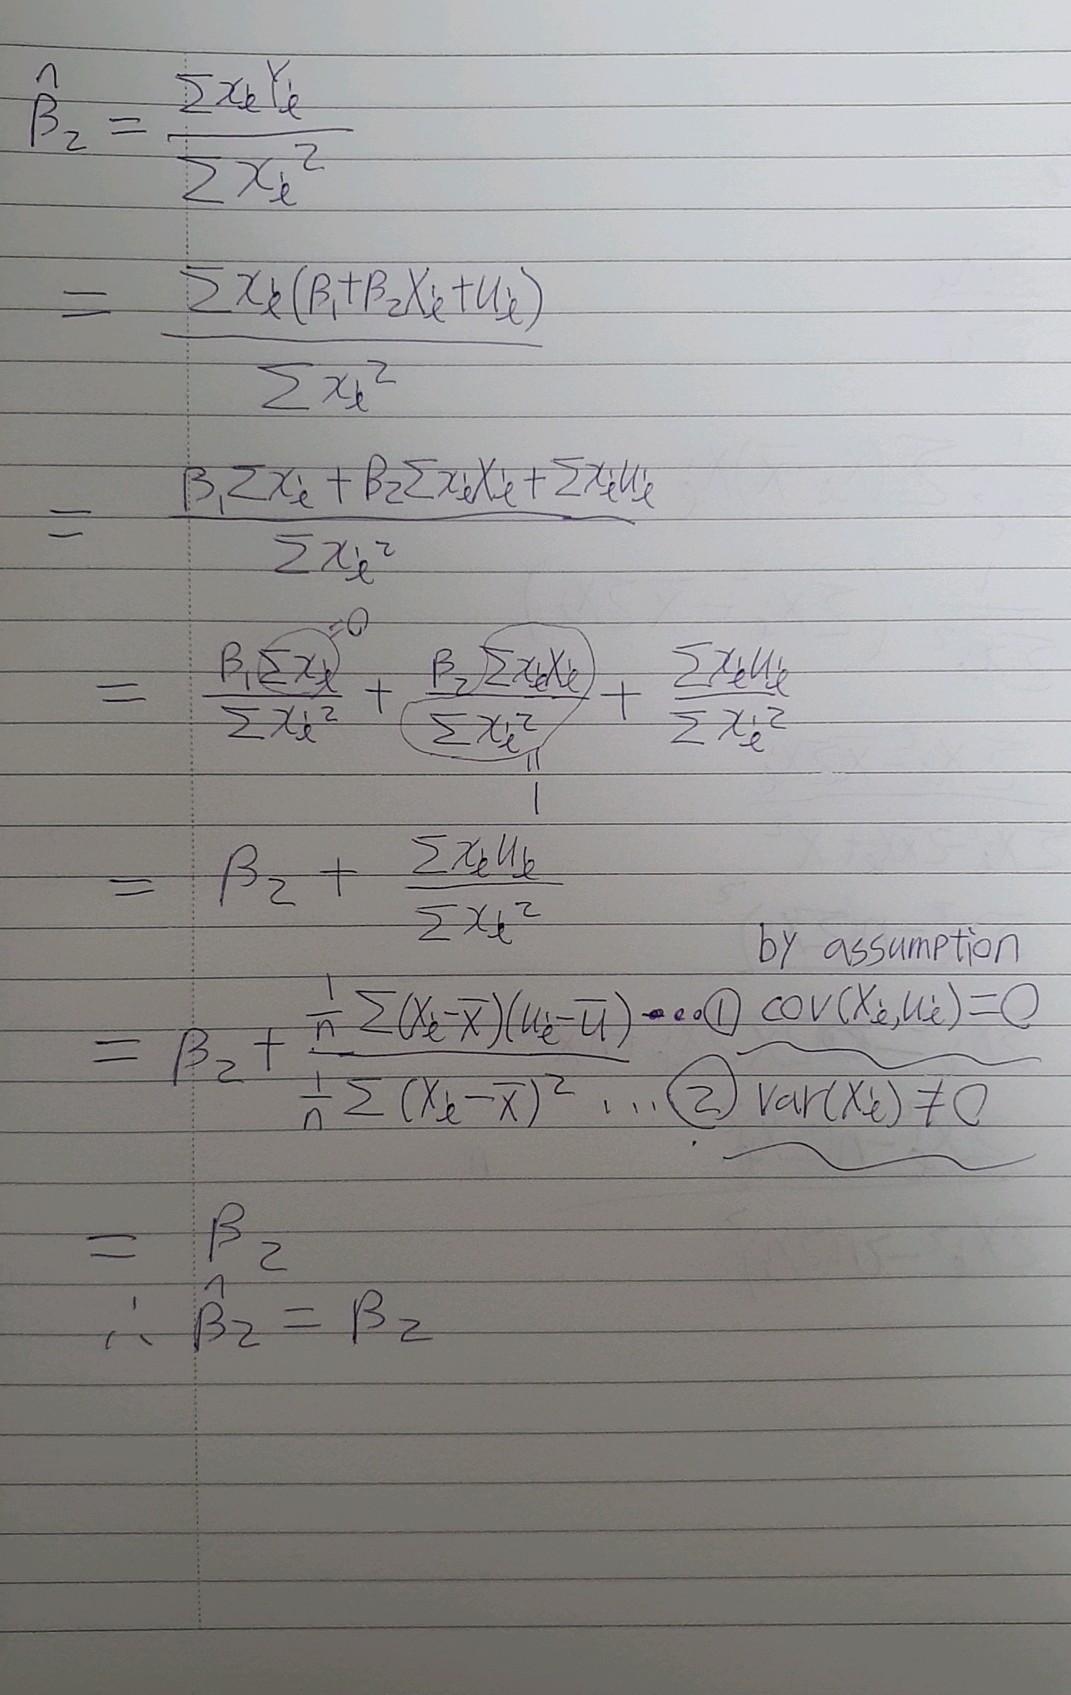 β̂₂ = ΣxᵢYᵢ / Σxᵢ²
= Σxᵢ(β₁+β₂Xᵢ+uᵢ) / Σxᵢ²
= β₁Σxᵢ + β₂ΣxᵢXᵢ + Σxᵢuᵢ / Σxᵢ²
=0
= β₁Σxᵢ / Σxᵢ² + β₂ΣxᵢXᵢ / Σxᵢ² + Σxᵢuᵢ / Σxᵢ²
=
1
= β₂ + Σxᵢuᵢ / Σxᵢ²
by assumption
= β₂ + 1/n Σ(Xᵢ-X̄)(uᵢ-ū) / 1/n Σ(Xᵢ-X̄)²
...① cov(Xᵢ,uᵢ)=0
...② var(Xᵢ)≠0
= β₂
∴ β̂₂ = β₂